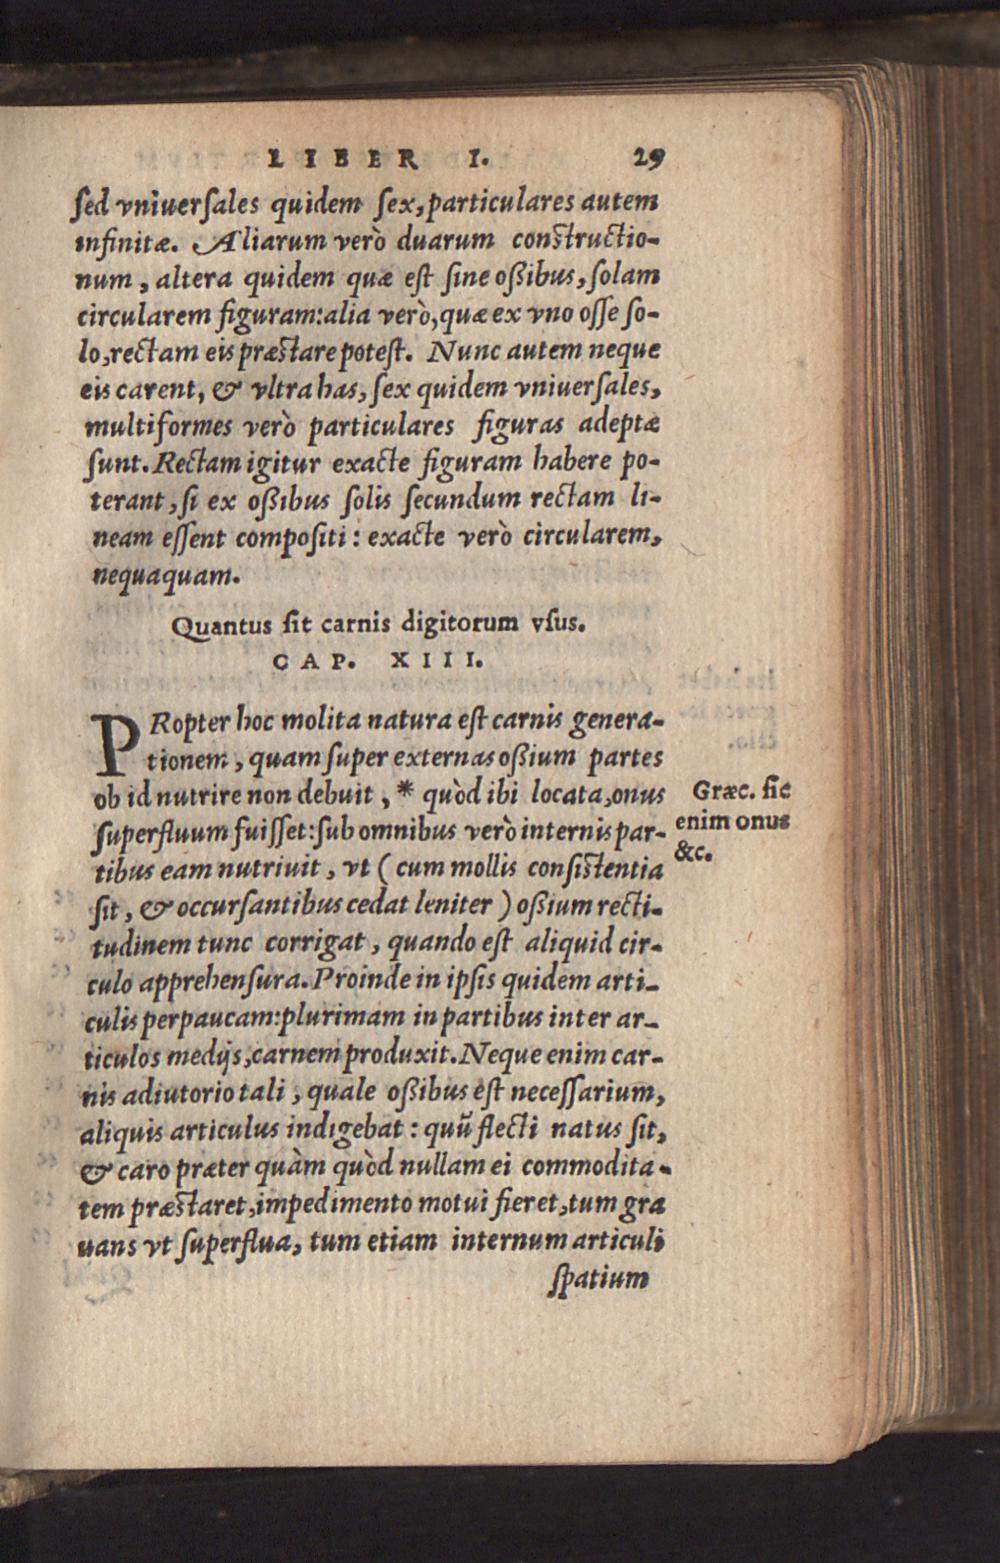 LIBER I. 29
ſed vniuerſales quidem ſex, particulares autem
infinitæ. Aliarum verò duarum conſtructio-
num, altera quidem quæ eſt ſine oßibus, ſolam
circularem figuram: alia verò, quæ ex vno oſſe ſo-
lo, rectam eis præſtare poteſt. Nunc autem neque
eis carent, & vltra has, ſex quidem vniuerſales,
multiformes verò particulares figuras adeptæ
ſunt. Rectam igitur exacte figuram habere po-
terant, ſi ex oßibus ſolis ſecundum rectam li-
neam eſſent compoſiti: exacte verò circularem,
nequaquam.
Quantus ſit carnis digitorum vſus.
CAP. XIII.
PRopter hoc molita natura eſt carnis genera-
tionem, quam ſuper externas oßium partes
ob id nutrire non debuit, * quòd ibi locata, onus
ſuperfluum fuiſſet: ſub omnibus verò internis par-
tibus eam nutriuit, vt (cum mollis conſiſtentia
ſit, & occurſantibus cedat leniter) oßium recti-
tudinem tunc corrigat, quando eſt aliquid cir-
culo apprehenſura. Proinde in ipſis quidem arti-
culis perpaucam: plurimam in partibus inter ar-
ticulos medijs, carnem produxit. Neque enim car-
nis adiutorio tali, quale oßibus eſt neceſſarium,
aliquis articulus indigebat: quũ flecti natus ſit,
& caro præter quàm quòd nullam ei commodita-
tem præſtaret, impedimento motui fieret, tum gra
uans vt ſuperflua, tum etiam internum articuli
ſpatium
Græc. ſic
enim onus
&c.